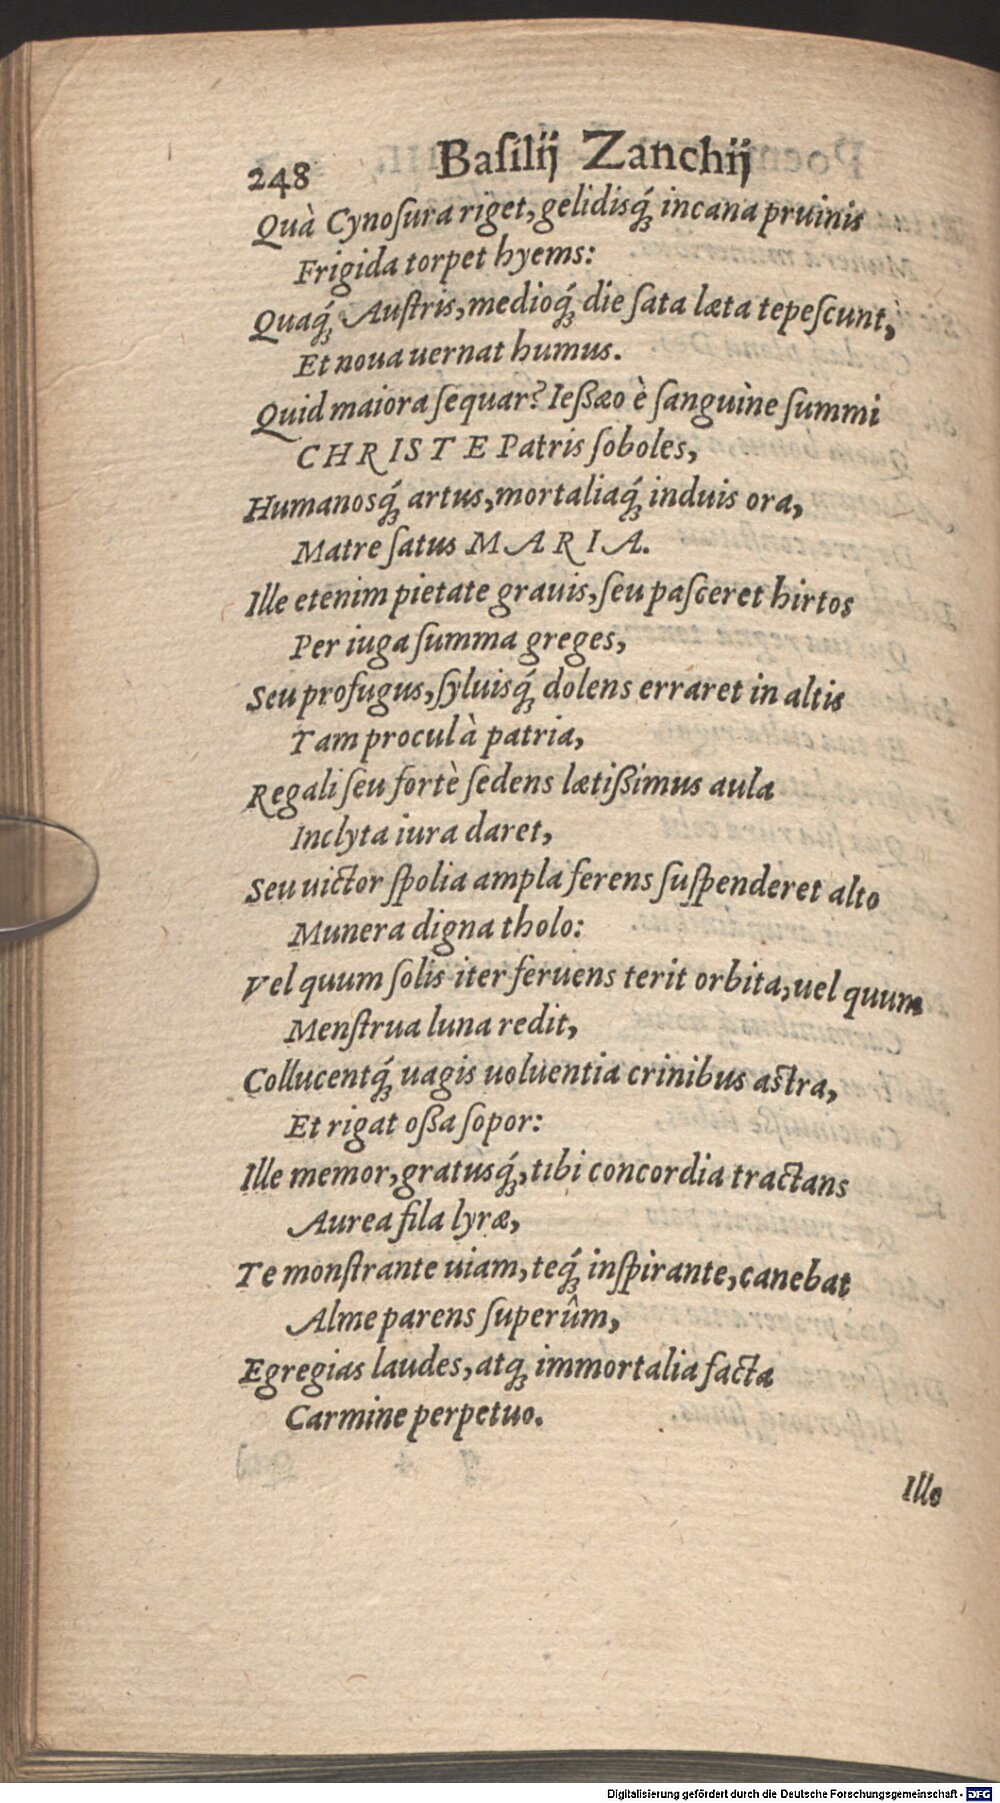 248 Baſilij Zanchij
Quà Cynoſura riget, gelidisq́; incana pruinis
Frigida torpet hyems:
Quaq́; Auſtris, medioq́; die ſata læta tepeſcunt,
Et noua uernat humus.
Quid maiora ſequar? Ießæo è ſanguine ſummi
CHRISTE Patris ſoboles,
Humanosq́; artus, mortaliaq́; induis ora,
Matre ſatus MARIA.
Ille etenim pietate grauis, ſeu paſceret hirtos
Per iuga ſumma greges,
Seu profugus, ſyluisq́; dolens erraret in altis
Tam procul à patria,
Regali ſeu fortè ſedens lætißimus aula
Inclyta iura daret,
Seu uictor ſpolia ampla ferens ſuſpenderet alto
Munera digna tholo:
Vel quum ſolis iter feruens terit orbita, uel quum
Menſtrua luna redit,
Collucentq́; uagis uoluentia crinibus aſtra,
Et rigat oßa ſopor:
Ille memor, gratusq́;, tibi concordia tractans
Aurea fila lyræ,
Te monſtrante uiam, teq́; inſpirante, canebat
Alme parens ſuperûm,
Egregias laudes, atq; immortalia facta
Carmine perpetuo.
Ille
Digitalisierung gefördert durch die Deutsche Forschungsgemeinschaft - DFG